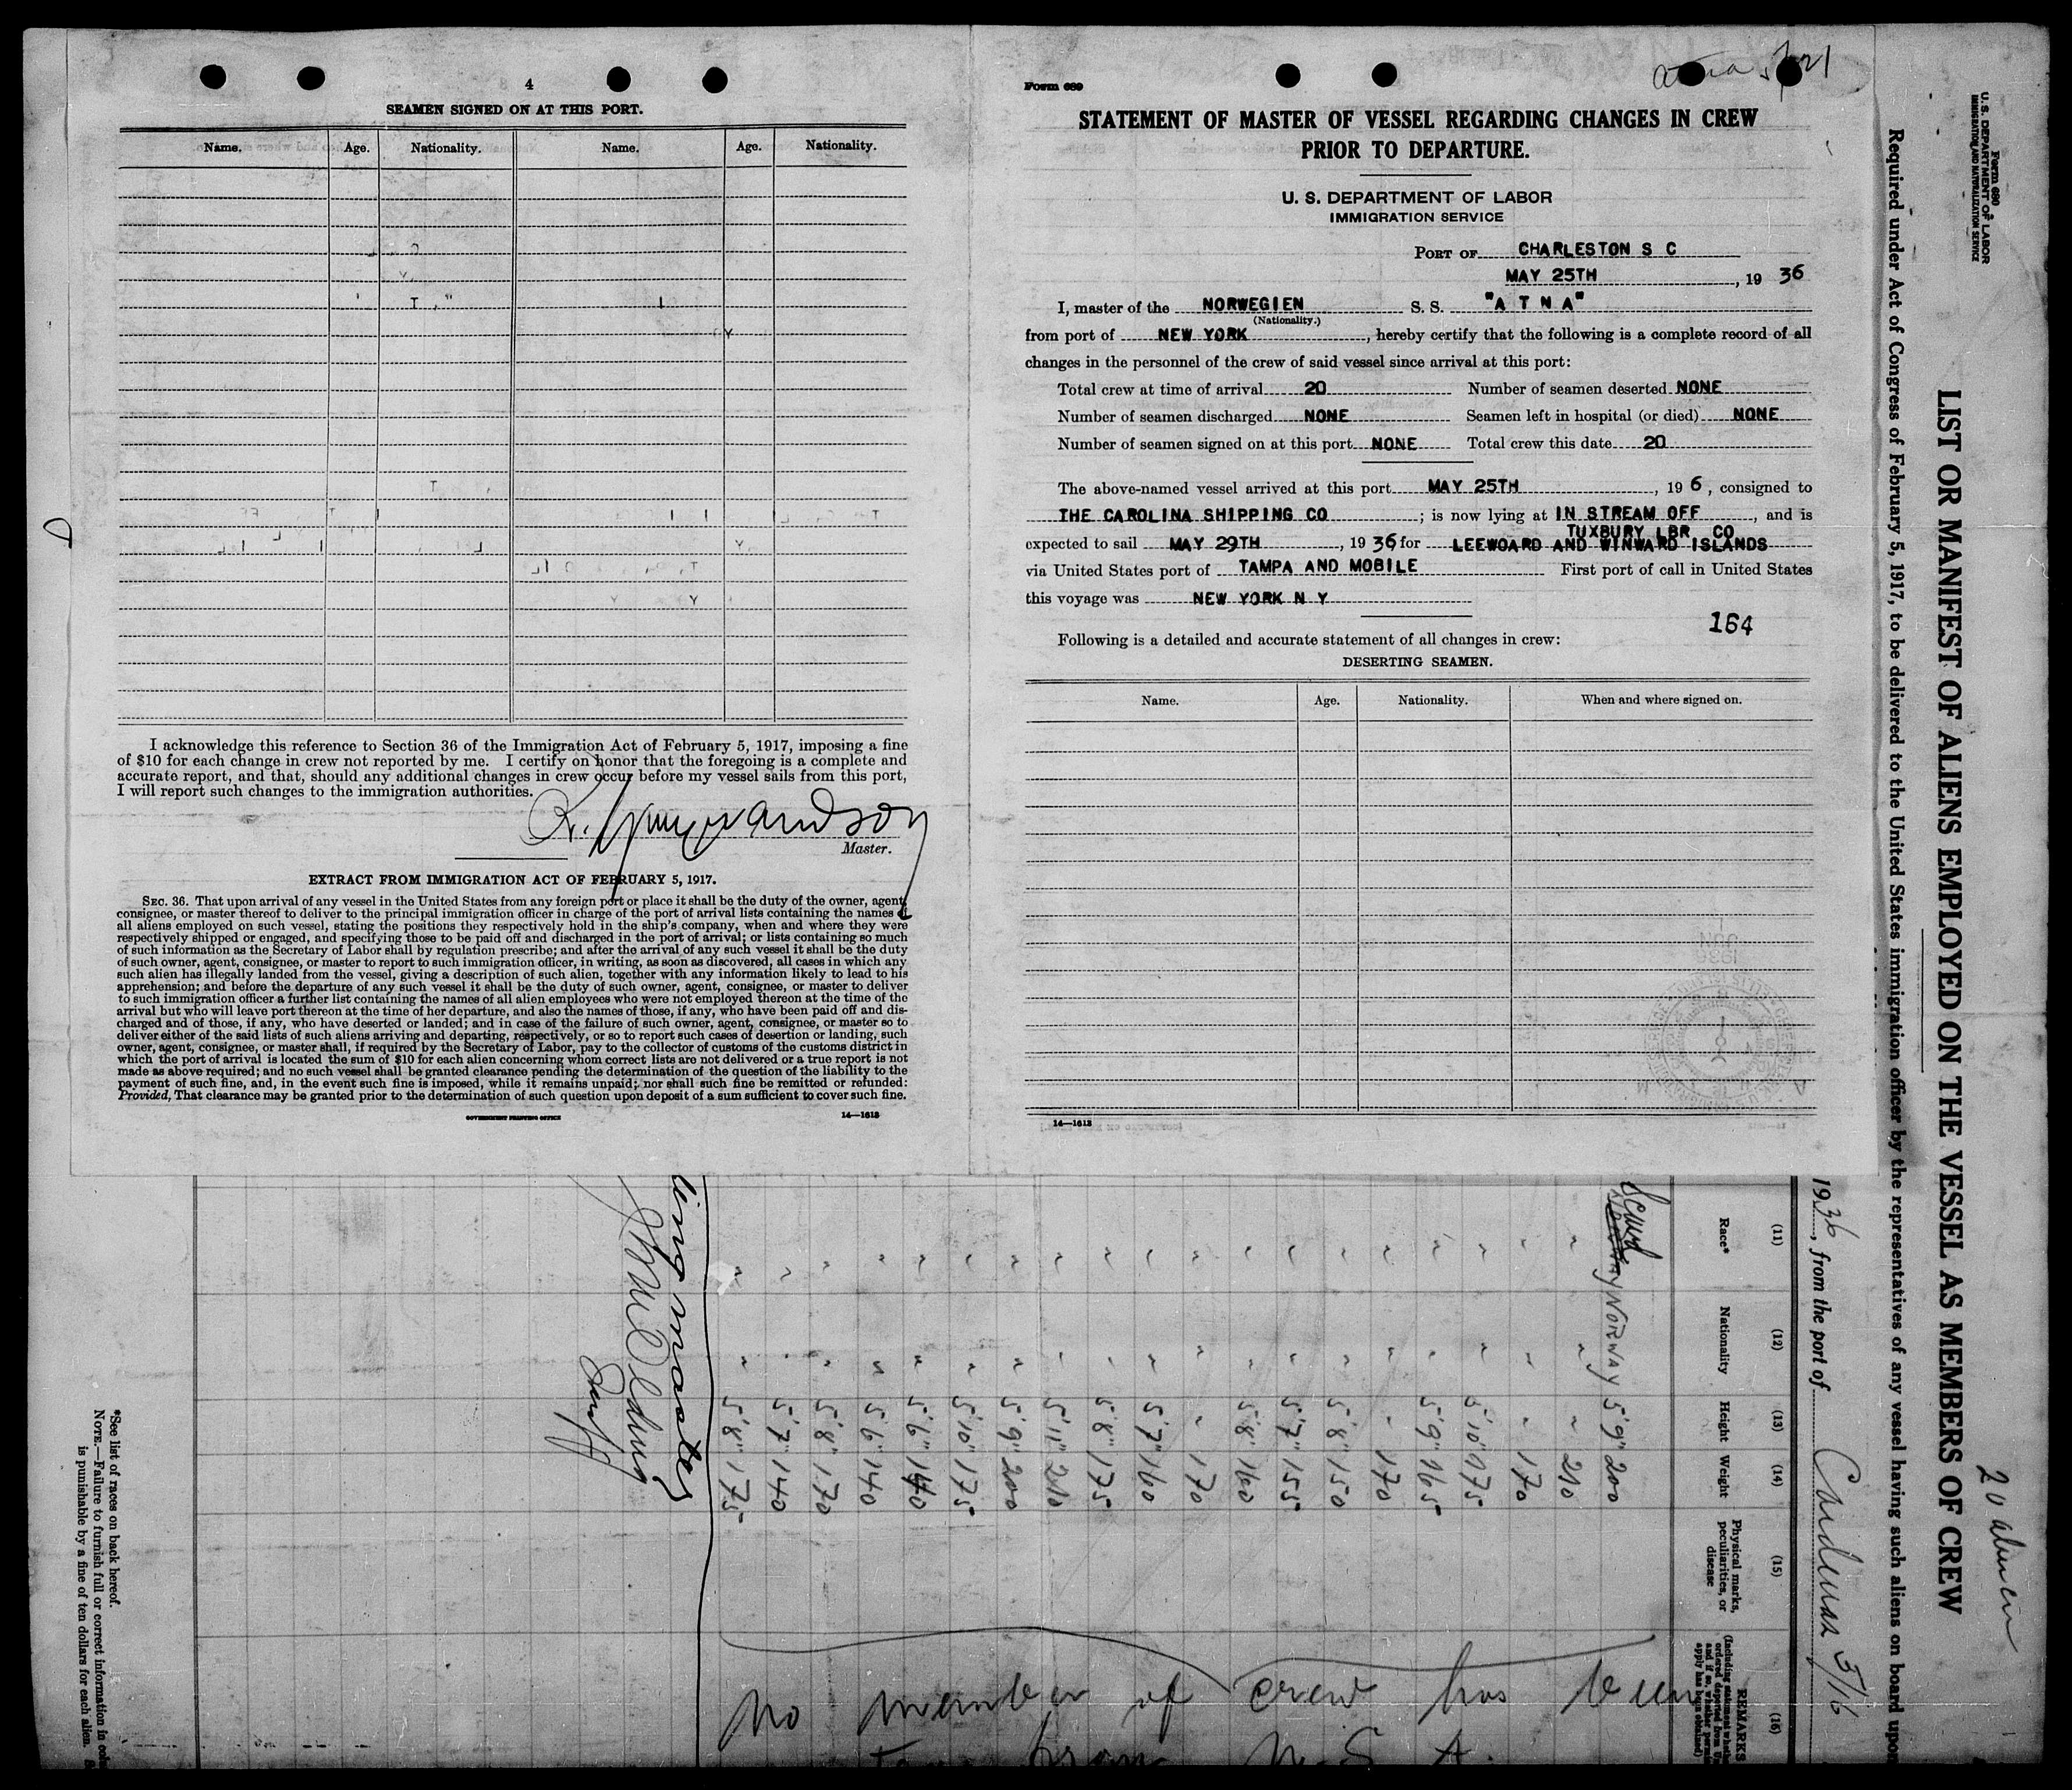 4
SEAMEN SIGNED ON AT THIS PORT.
Name. Age. Nationality. Name. Age. Nationality.
I acknowledge this reference to Section 36 of the Immigration Act of February 5, 1917, imposing a fine
of $10 for each change in crew not reported by me. I certify on honor that the foregoing is a complete and
accurate report, and that, should any additional changes in crew occur before my vessel sails from this port,
I will report such changes to the immigration authorities.
Master.
EXTRACT FROM IMMIGRATION ACT OF FEBRUARY 5, 1917.
SEC. 36. That upon arrival of any vessel in the United States from any foreign port or place it shall be the duty of the owner, agent,
consignee, or master thereof to deliver to the principal immigration officer in charge of the port of arrival lists containing the names of
all aliens employed on such vessel, stating the positions they respectively hold in the ship's company, when and where they were
respectively shipped or engaged, and specifying those to be paid off and discharged in the port of arrival; or lists containing so much
of such information as the Secretary of Labor shall by regulation prescribe; and after the arrival of any such vessel it shall be the duty
of such owner, agent, consignee, or master to report to such immigration officer, in writing, as soon as discovered, all cases in which any
such alien has illegally landed from the vessel, giving a description of such alien, together with any information likely to lead to his
apprehension; and before the departure of any such vessel it shall be the duty of such owner, agent, consignee, or master to deliver
to such immigration officer a further list containing the names of all alien employees who were not employed thereon at the time of the
arrival but who will leave port thereon at the time of her departure, and also the names of those, if any, who have been paid off and dis-
charged and of those, if any, who have deserted or landed; and in case of the failure of such owner, agent, consignee, or master so to
deliver either of the said lists of such aliens arriving and departing, respectively, or so to report such cases of desertion or landing, such
owner, agent, consignee, or master shall, if required by the Secretary of Labor, pay to the collector of customs of the customs district in
which the port of arrival is located the sum of $10 for each alien concerning whom correct lists are not delivered or a true report is not
made as above required; and no such vessel shall be granted clearance pending the determination of the question of the liability to the
payment of such fine, and, in the event such fine is imposed, while it remains unpaid; nor shall such fine be remitted or refunded:
Provided, That clearance may be granted prior to the determination of such question upon deposit of a sum sufficient to cover such fine.
GOVERNMENT PRINTING OFFICE 14—1613
Form 689
STATEMENT OF MASTER OF VESSEL REGARDING CHANGES IN CREW
PRIOR TO DEPARTURE.
U. S. DEPARTMENT OF LABOR
IMMIGRATION SERVICE
PORT OF CHARLESTON S C
MAY 25TH, 19 36
I, master of the NORWEGIEN S. S. "A T N A"
(Nationality.)
from port of NEW YORK, hereby certify that the following is a complete record of all
changes in the personnel of the crew of said vessel since arrival at this port:
Total crew at time of arrival 20 Number of seamen deserted NONE
Number of seamen discharged NONE Seamen left in hospital (or died) NONE
Number of seamen signed on at this port NONE Total crew this date 20
The above-named vessel arrived at this port MAY 25TH, 19 6, consigned to
THE CAROLINA SHIPPING CO; is now lying at IN STREAM OFF, and is
TUXBURY LBR CO
expected to sail MAY 29TH, 19 36, for LEEWOARD AND WINWARD ISLANDS
via United States port of TAMPA AND MOBILE First port of call in United States
this voyage was NEW YORK N Y
164
Following is a detailed and accurate statement of all changes in crew:
DESERTING SEAMEN.
Name. Age. Nationality. When and where signed on.
14—1613
Form 680
U. S. DEPARTMENT OF LABOR
IMMIGRATION AND NATURALIZATION SERVICE
20 alien
LIST OR MANIFEST OF ALIENS EMPLOYED ON THE VESSEL AS MEMBERS OF CREW
Required under Act of Congress of February 5, 1917, to be delivered to the United States immigration officer by the representatives of any vessel having such aliens on board upon
1936, from the port of Cardenas 5/16
(11) (12) (13) (14) (15) (16)
Race* Nationality Height Weight Physical marks, peculiarities, or disease REMARKS
Scand NORWAY 5'9" 200
" " " 210
" " " 170
" " 5'10" 175
" " 5'9" 165
" " " 170
" " 5'8" 150
" " 5'7" 155
" " 5'8" 160
" " " 170
" " 5'7" 160
" " 5'8" 175
" " 5'11" 210
" " 5'9" 200
" " 5'10" 175
" " 5'6" 140
" " 5'6" 140
" " 5'8" 170
" " 5'7" 140
" " 5'8" 175
ling master
No member of crew has been
from U. S. A.
*See list of races on back hereof.
NOTE.—Failure to furnish full or correct information in
is punishable by a fine of ten dollars for each alien.